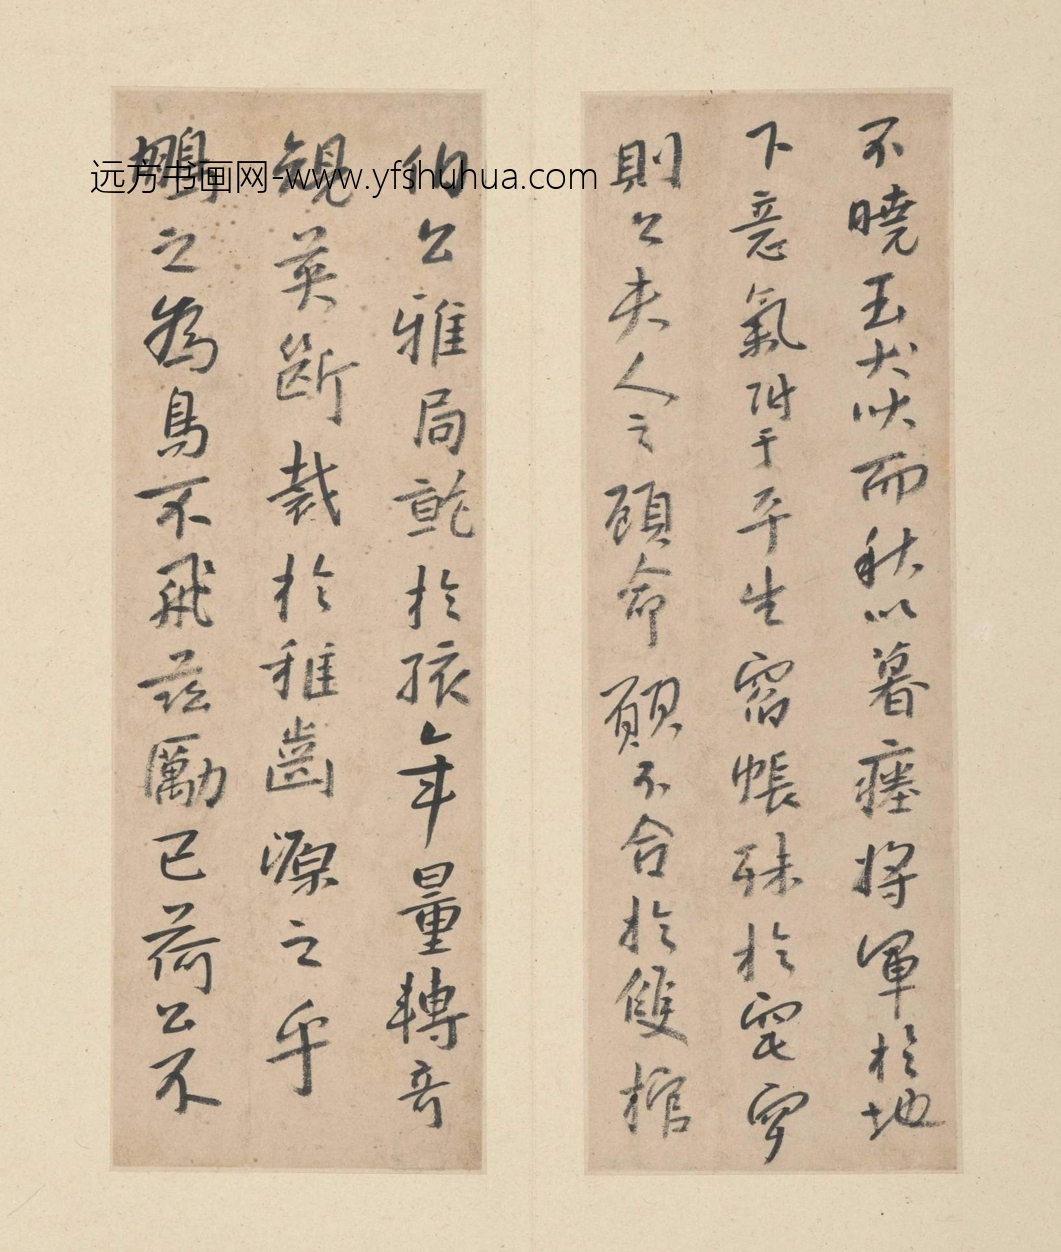 不曉玉犬吠而秋以暮瘞將軍於地
下意氣附于平生宿帳殊於窀穸
則公夫人之顧命願不合於雙棺
公雅局於孩年量轉奇
英斷裁於稚齒源之乎
之為鳥不飛茲勵已荷公不
远方书画网-www.yfshuhua.com